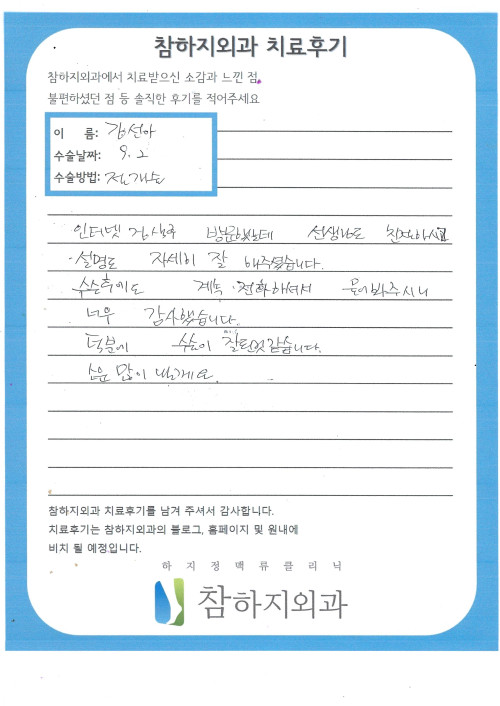 참하지외과 치료후기
참하지외과에서 치료받으신 소감과 느낀 점,
불편하셨던 점 등 솔직한 후기를 적어주세요
이 름: 김선아
수술날짜: 9. 2
수술방법:
인터넷 검색후 방문했는데 선생님도 친절하시고
설명도 자세히 잘 해주셨습니다.
수술후에도 계속 전화하셔서 물어봐주시니
너무 감사했습니다.
덕분에 수술이 잘된것 같습니다.
소문 많이 낼게요.
참하지외과 치료후기를 남겨 주셔서 감사합니다.
치료후기는 참하지외과의 블로그, 홈페이지 및 원내에
비치 될 예정입니다.
하지정맥류클리닉
참하지외과